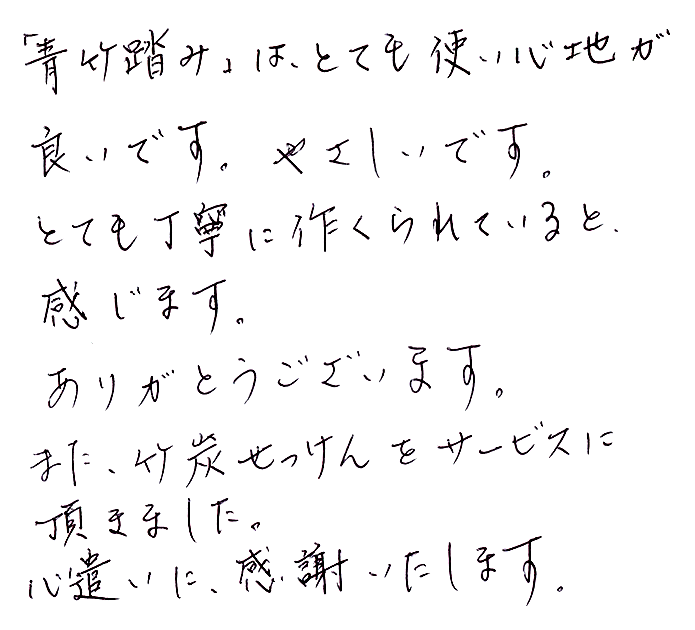 「青竹踏み」は、とても使い心地が
良いです。やさしいです。
とても丁寧に作くられていると、
感じます。
ありがとうございます。
また、竹炭せっけんをサービスに
頂きました。
心遣いに、感謝いたします。